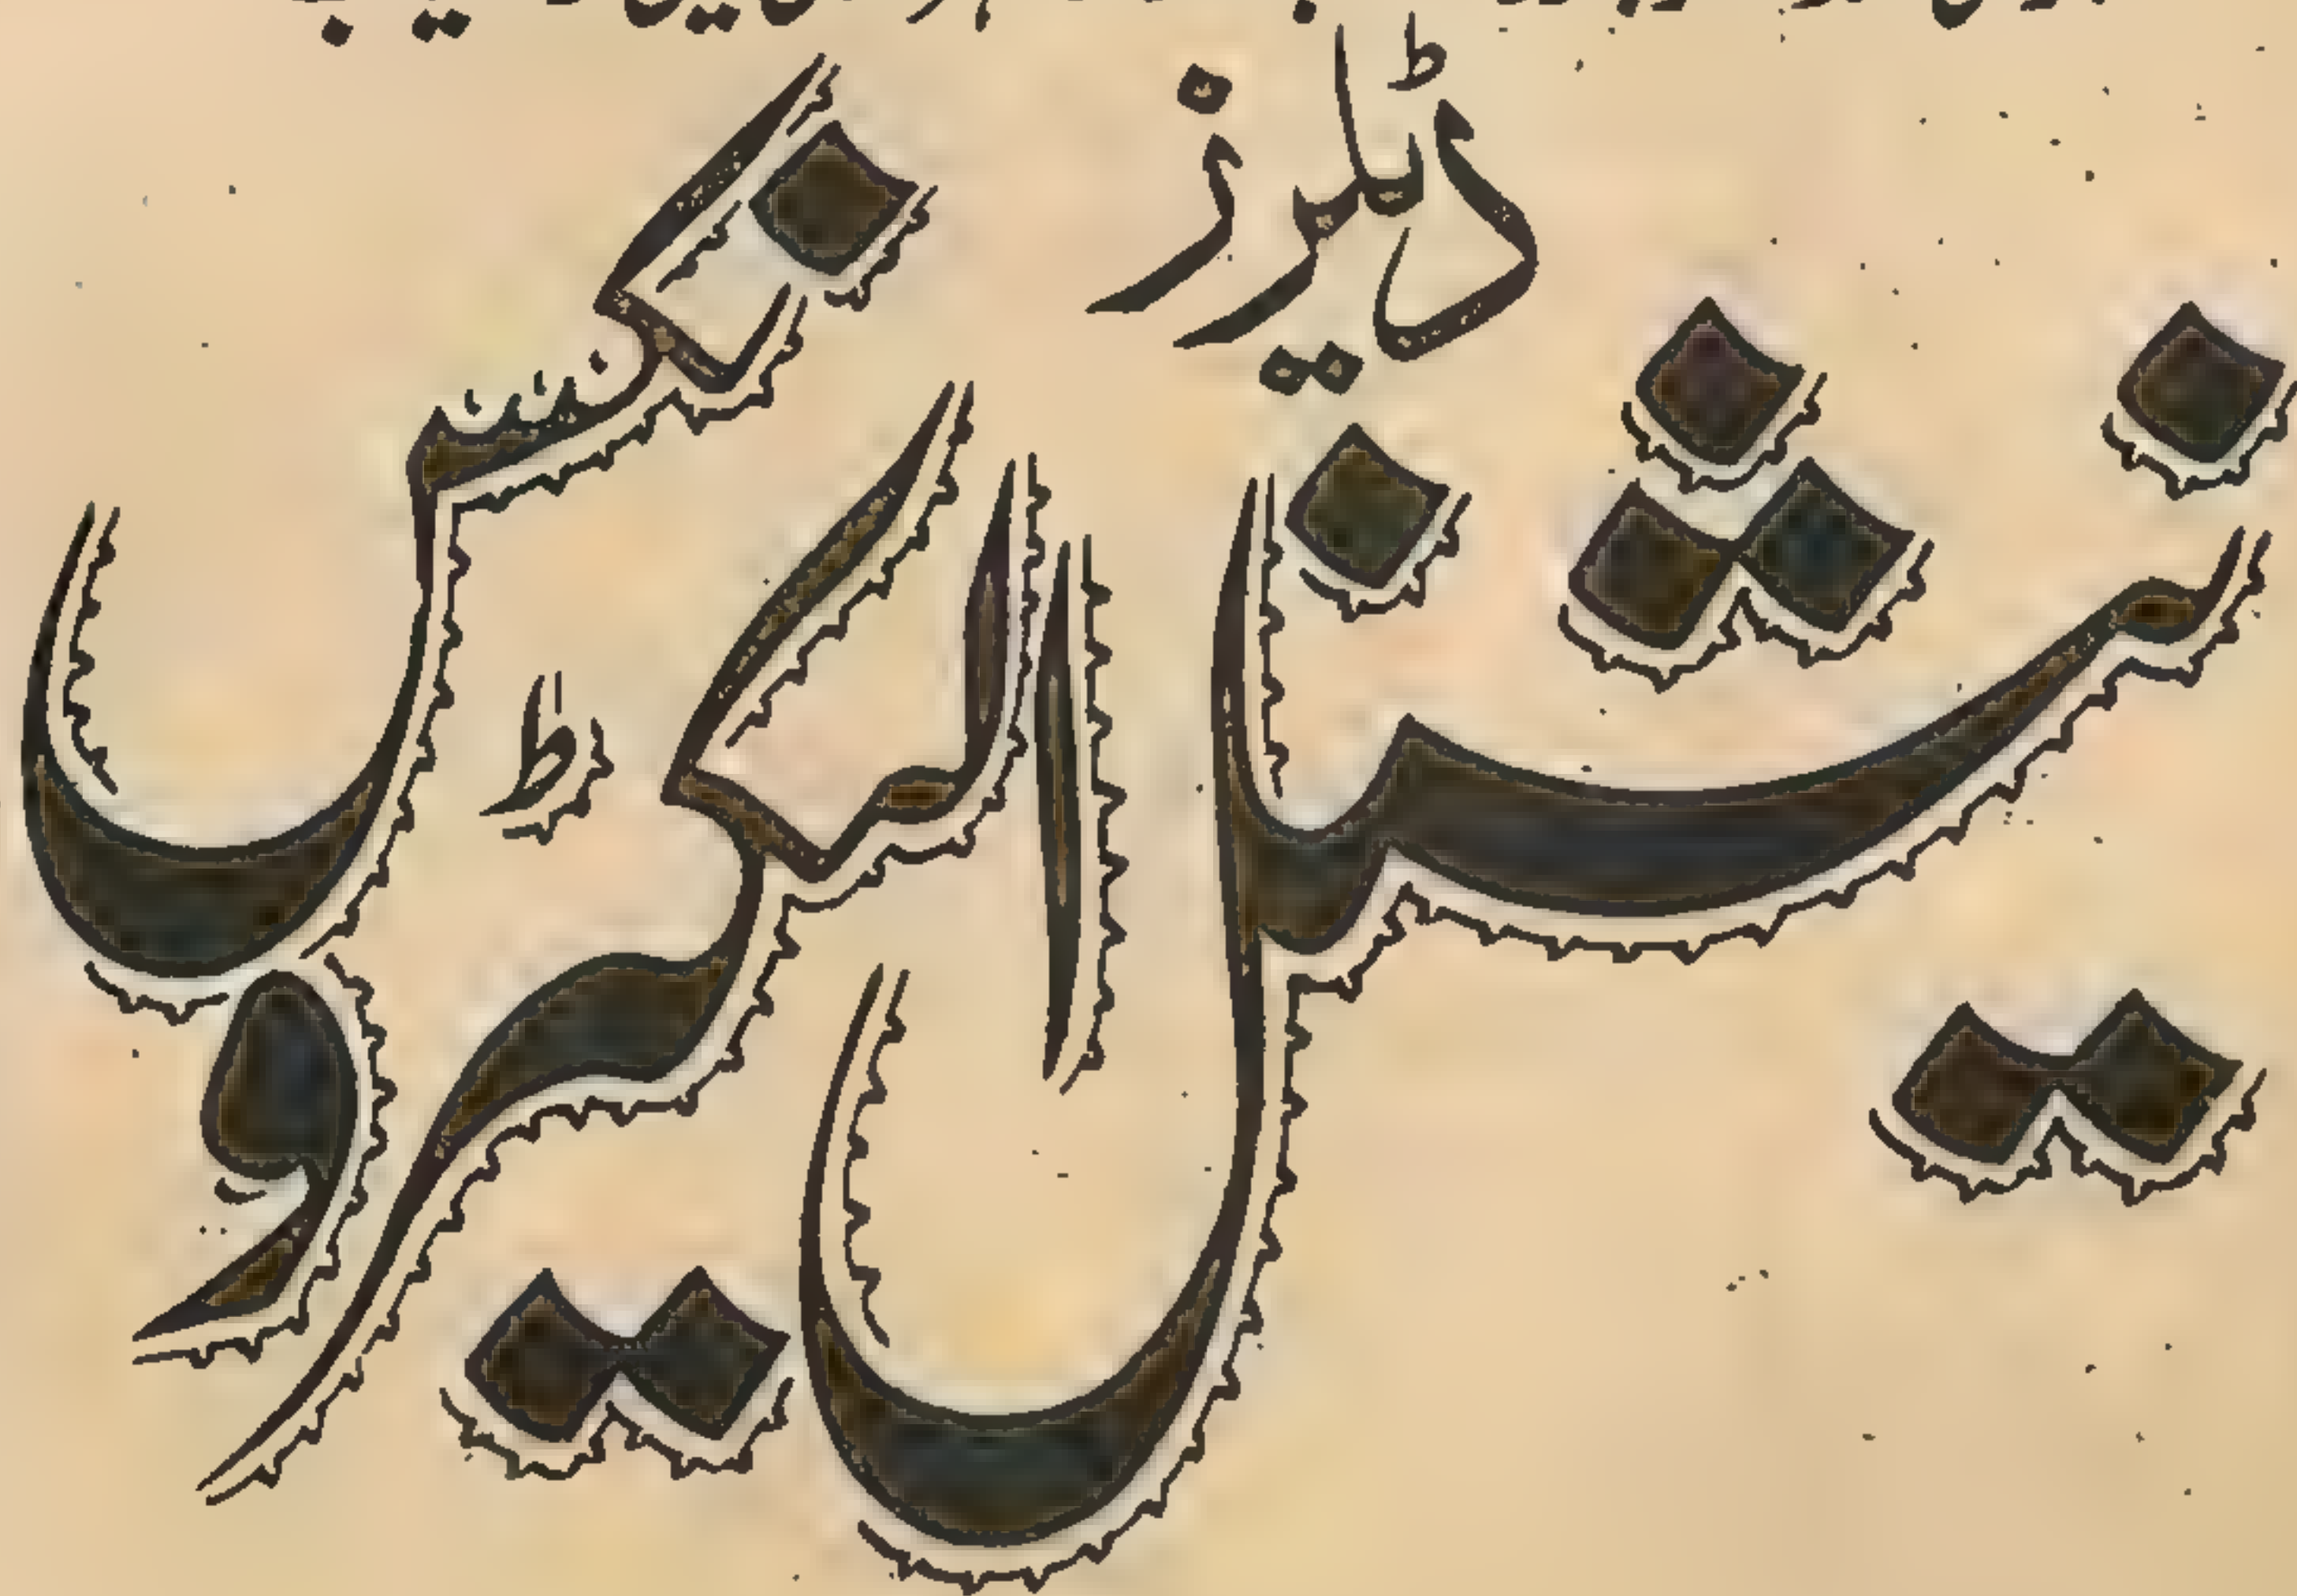 ڈیلرز
نیشنل الیکٹرونکس